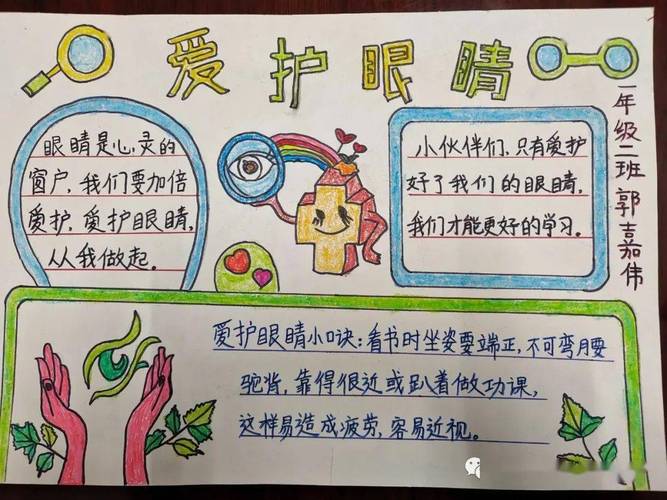 爱护眼睛
一年级二班郭嘉伟
眼睛是心灵的
窗户，我们要加倍
爱护，爱护眼睛，
从我做起。
小伙伴们，只有爱护
好了我们的眼睛，
我们才能更好的学习。
爱护眼睛小口诀：看书时坐姿要端正，不可弯月要
驼背，靠得很近或趴着做功课，
这样易造成疲劳，容易近视。